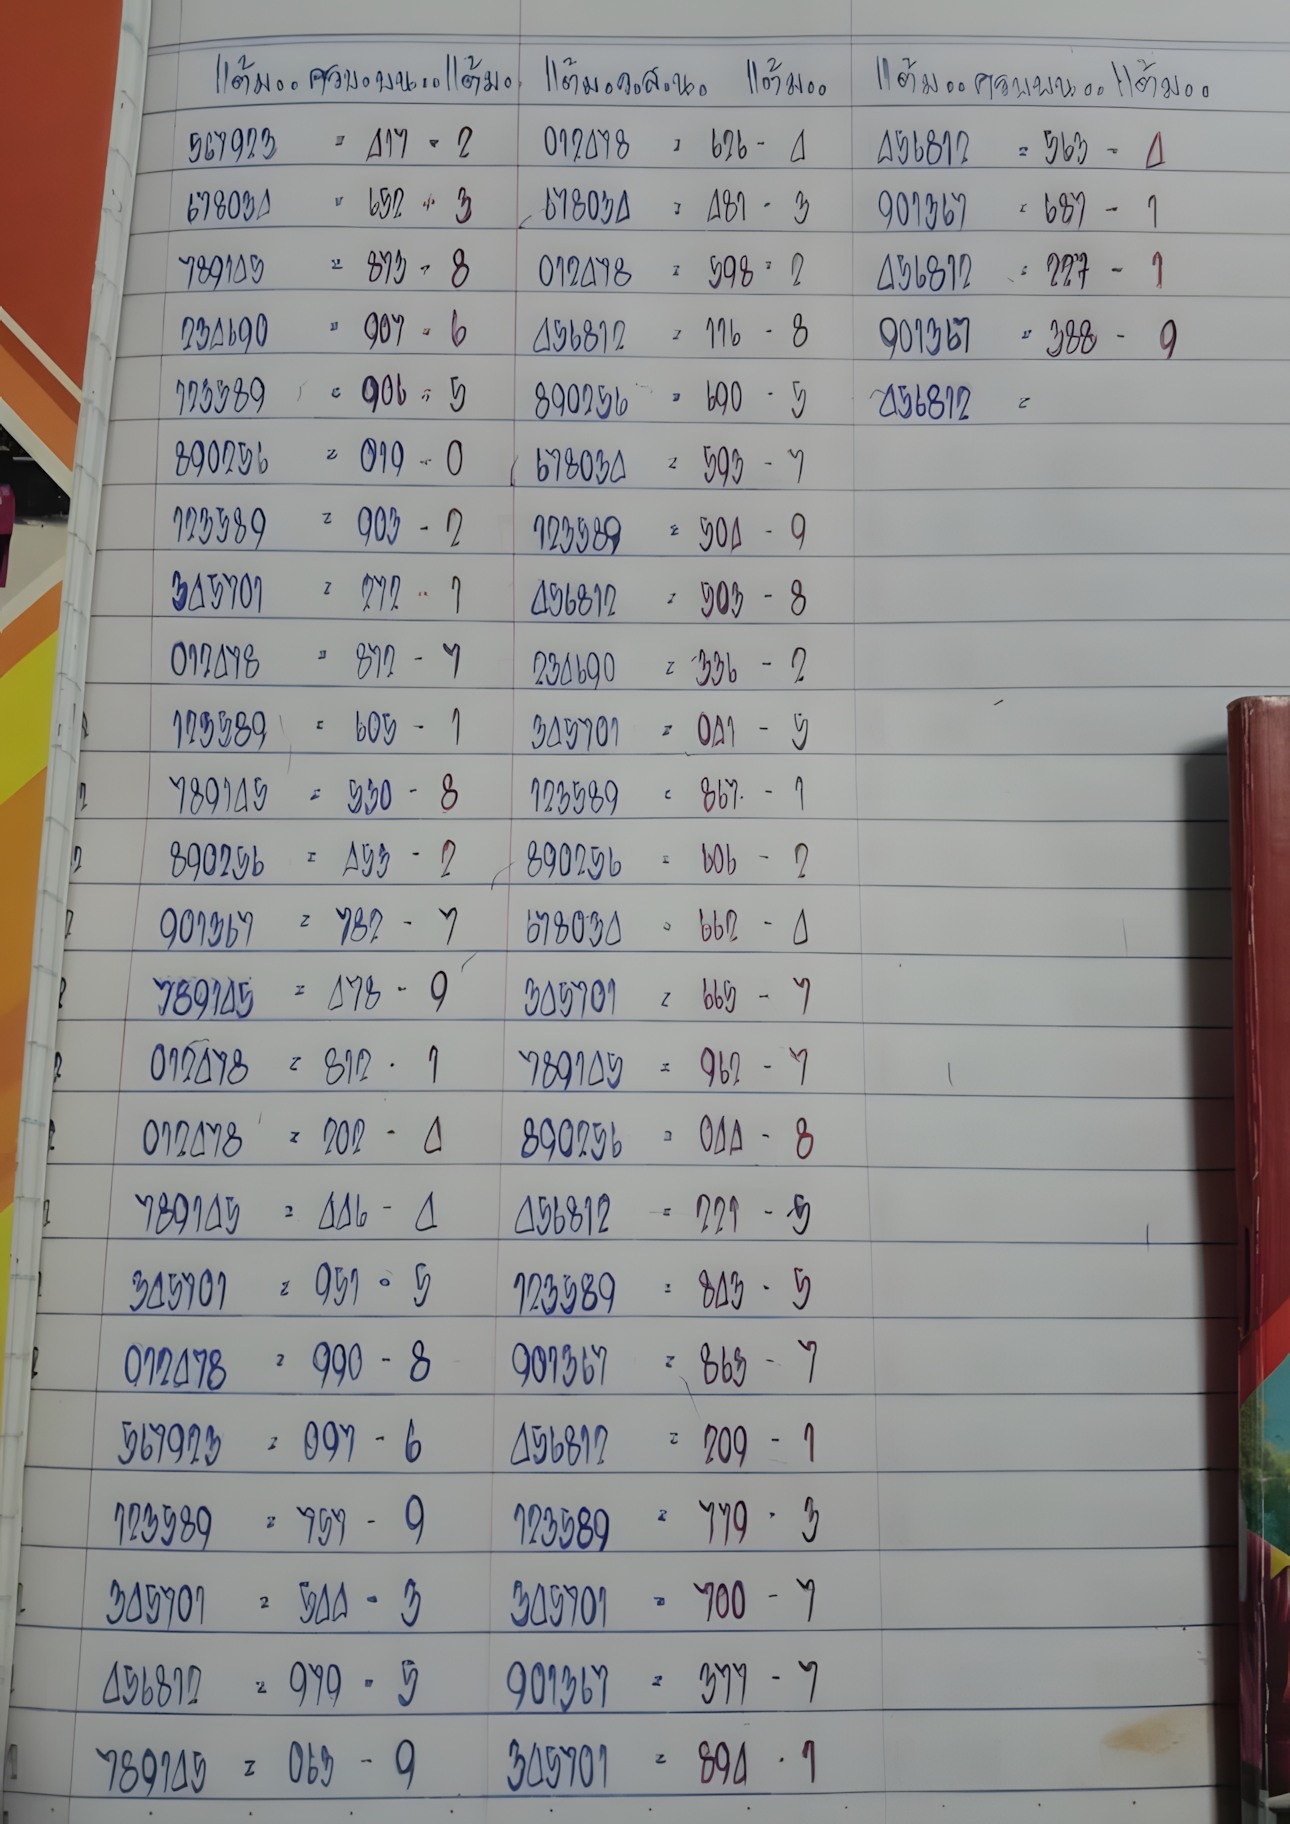 แต้ม.. ศวบ.บน.. แต้ม.
567923 = 417 - 2
678034 = 652 - 3
789145 = 873 - 8
234690 = 907 - 6
123589 = 906 - 5
890256 = 019 - 0
123589 = 903 - 2
345701 = 272 - 1
012478 = 872 - 7
123589 = 605 - 1
789145 = 530 - 8
890256 = 453 - 2
901367 = 782 - 7
789145 = 478 - 9
012478 = 812 - 1
012478 = 202 - 4
789145 = 446 - 4
345701 = 951 - 5
012478 = 990 - 8
567923 = 097 - 6
123589 = 757 - 9
345701 = 544 - 3
456812 = 979 - 5
789145 = 063 - 9
แต้ม.ว.ส.น. แต้ม..
012478 = 626 - 4
678034 = 481 - 3
012478 = 598 - 2
456812 = 116 - 8
890256 = 690 - 5
678034 = 593 - 7
123589 = 504 - 9
456812 = 503 - 8
234690 = 336 - 2
345701 = 041 - 5
123589 = 867 - 1
890256 = 606 - 2
678034 = 662 - 4
345701 = 665 - 7
789145 = 962 - 7
890256 = 044 - 8
456812 = 221 - 5
123589 = 843 - 5
901367 = 863 - 7
456812 = 209 - 1
123589 = 779 - 3
345701 = 700 - 7
901367 = 377 - 7
345701 = 894 - 1
แต้ม.. ศวบบน.. แต้ม..
456812 = 563 - 4
901367 = 687 - 1
456812 = 227 - 1
901367 = 388 - 9
456812 =